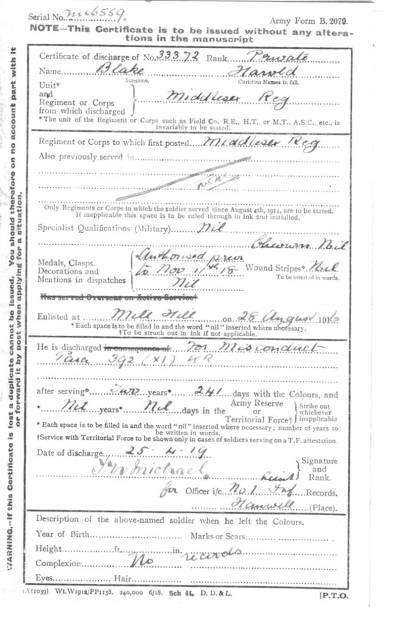 Serial No. M46559.
Army Form B. 2079.
NOTE—This Certificate is to be issued without any altera-
tions in the manuscript
Certificate of discharge of No. 33372 Rank Private
Name Blake Harold
Surname. Christian Names in full.
Unit*
and
Regiment or Corps
from which discharged
Middlesex Reg
* The unit of the Regiment or Corps such as Field Co. R.E., H.T. or M.T., A.S.C., etc., is
invariably to be stated.
Regiment or Corps to which first posted Middlesex Reg
Also previously served in
Only Regiments or Corps in which the soldier served since August 4th, 1914, are to be stated.
If inapplicable this space is to be ruled through in ink and initialled.
Specialist Qualifications (Military) Nil
Medals, Clasps,
Decorations and
Mentions in dispatches
Authorised prior
to Nov 11th 18
Nil
Wound Stripes* Nil
To be inserted in words.
Has served Overseas on Active Service†
Enlisted at Mill Hill on 28 August
* Each space is to be filled in and the word "nil" inserted where necessary.
†To be struck out in ink if not applicable.
He is discharged in consequence of For Misconduct
Para 392 (XI) KR
after serving* Two years* 241 days with the Colours, and
* Nil years* Nil days in the
Army Reserve
or
Territorial Force†
Strike out
whichever
inapplicable
* Each space is to be filled in and the word "nil" inserted where necessary; number of years to
be written in words.
†Service with Territorial Force to be shown only in cases of soldiers serving on a T.F. attestation.
Date of discharge 25-4-19
Signature
and
Rank.
for Officer i/c. No 1 Inf Records.
Hanwell (Place).
Description of the above-named soldier when he left the Colours.
Year of Birth Marks or Scars
Height ft. in.
Complexion No records
Eyes Hair
Wt.W1912/PP1138. 240,000 6/18. Sch 44. D. D. & L.
[P.T.O.
WARNING.—If this Certificate is lost a duplicate cannot be issued. You should therefore on no account part with it
or forward it by post when applying for a situation.